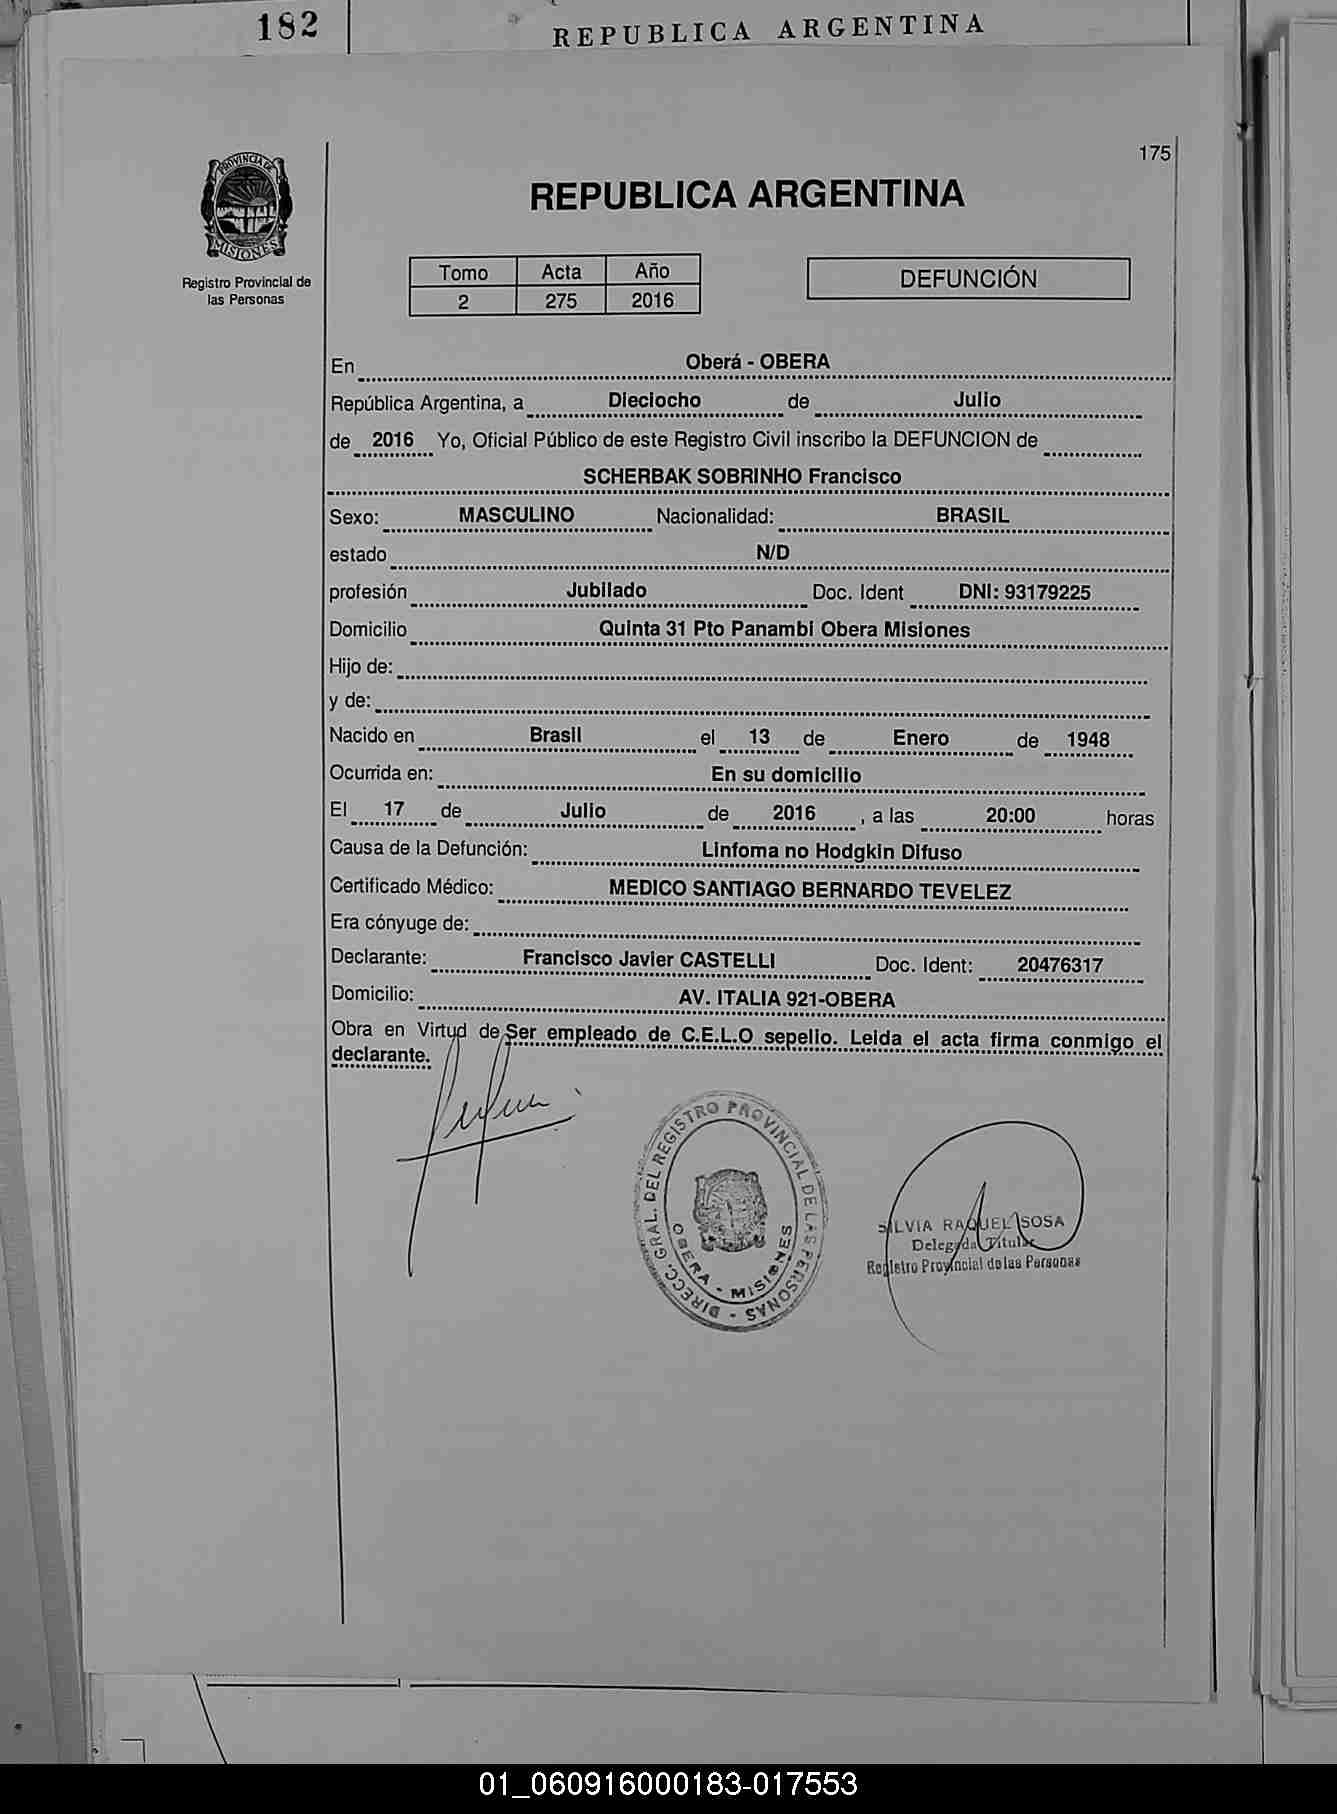 182
REPUBLICA ARGENTINA
175
PROVINCIA DE
MISIONES
Registro Provincial de
las Personas
REPUBLICA ARGENTINA
Tomo Acta Año
2 275 2016
DEFUNCIÓN
En Oberá - OBERA
República Argentina, a Dieciocho de Julio
de 2016 Yo, Oficial Público de este Registro Civil inscribo la DEFUNCION de
SCHERBAK SOBRINHO Francisco
Sexo: MASCULINO Nacionalidad: BRASIL
estado N/D
profesión Jubilado Doc. Ident DNI: 93179225
Domicilio Quinta 31 Pto Panambi Obera Misiones
Hijo de:
y de:
Nacido en Brasil el 13 de Enero de 1948
Ocurrida en: En su domicilio
El 17 de Julio de 2016 , a las 20:00 horas
Causa de la Defunción: Linfoma no Hodgkin Difuso
Certificado Médico: MEDICO SANTIAGO BERNARDO TEVELEZ
Era cónyuge de:
Declarante: Francisco Javier CASTELLI Doc. Ident: 20476317
Domicilio: AV. ITALIA 921-OBERA
Obra en Virtud de Ser empleado de C.E.L.O sepelio. Leida el acta firma conmigo el
declarante.
DIRECC. GRAL. DEL REGISTRO PROVINCIAL DE LAS PERSONAS -
OBERA - MISIONES
SILVIA RAQUEL SOSA
Delegada Titular
Registro Provincial de las Personas
01_060916000183-017553